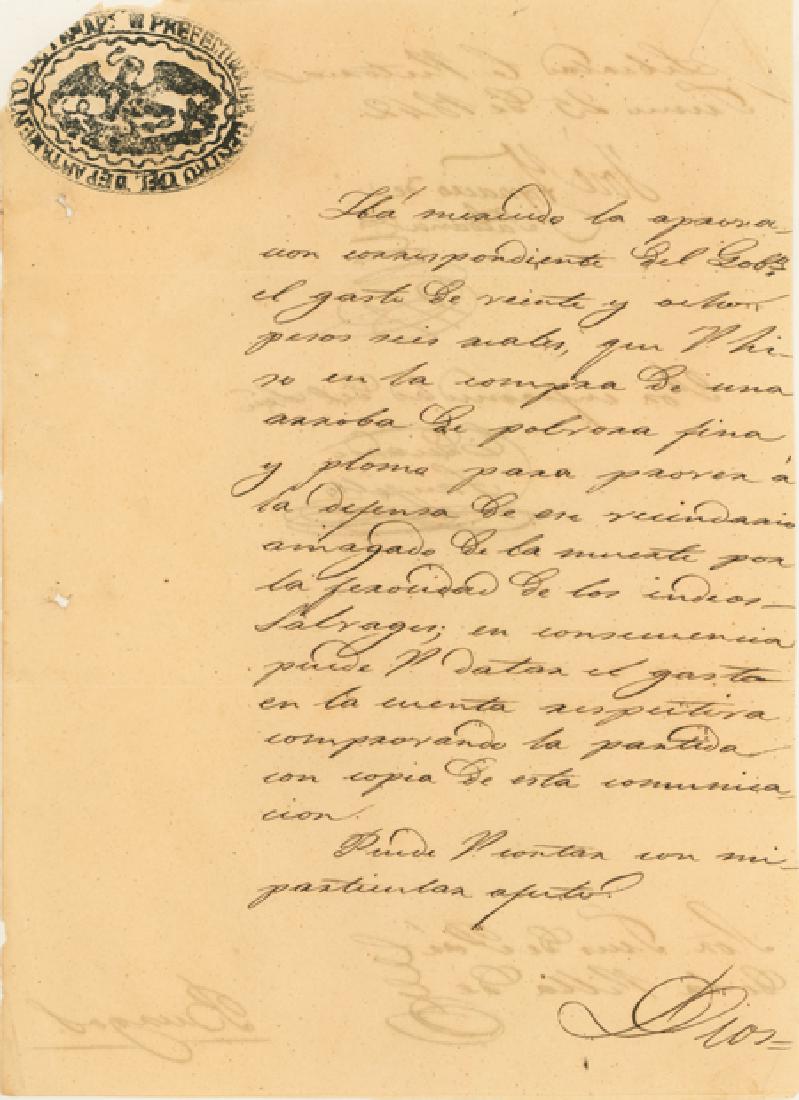 PREFECTURA DEL CENTRO DEL DEPARTAMENTO DE TAMAPS
Há merecido la aprova-
cion correspondiente del Gobno
el gasto de veinte y ocho
pesos seis reales, que V. hi-
zo en la compra de una
arroba de polvora fina
y plomo para proveer á
la defensa de ese vecindario
amagado de la muerte por
la ferocidad de los indios
salvages; en consecuencia
puede V. datar el gasto
en la cuenta respectiva
comprovando la partida
con copia de esta comunica-
cion.
Puede V. contar con mi
particular afecto.
Dios=
Burgos